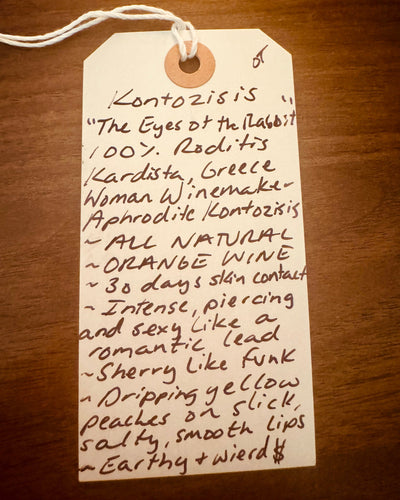 Kontozisis
"The Eyes of the Rabbit"
100% Roditis
Kardista, Greece
Woman Winemaker
Aphrodite Kontozisis
~ ALL NATURAL
~ ORANGE WINE
~ 30 days skin contact
~ Intense, piercing
and sexy like a
romantic lead
~ Sherry like funk
~ Dripping yellow
peaches on slick,
salty, smooth lips
~ Earthy + wierd $